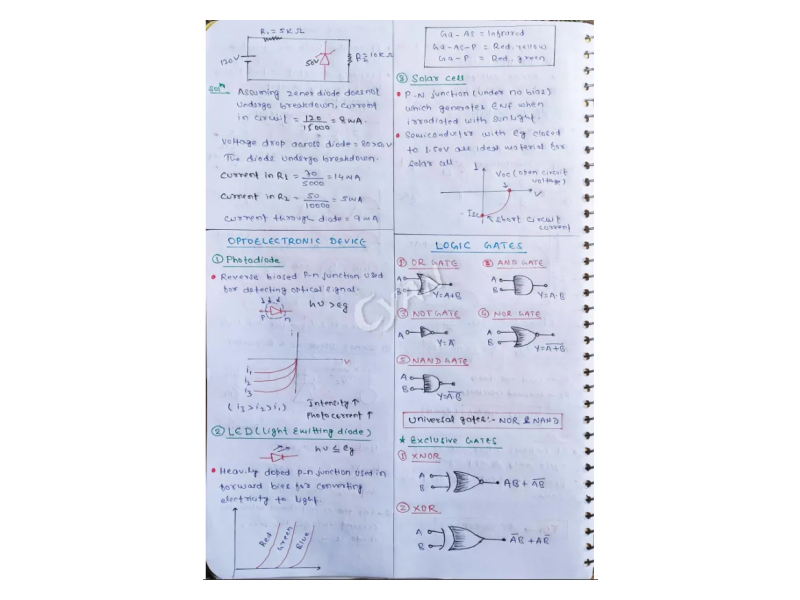 R₁ = 5KΩ
120V
50V
R₂ = 10KΩ
Solⁿ. Assuming zener diode does not
undergo breakdown, current
in circuit = 120/15000 = 8mA.
Voltage drop across diode = 80 > 50V
The diode undergo breakdown.
Current in R₁ = 70/5000 = 14mA
Current in R₂ = 50/10000 = 5mA
Current through diode = 9mA
OPTOELECTRONIC DEVICE
① Photodiode
• Reverse biased P-n junction used
for detecting optical signal.
hν > Eg
P n
i
V
i₁
i₂
i₃
(i₃ > i₂ > i₁)
Intensity ↑
Photocurrent ↑
② LED (Light Emitting diode)
hν ≤ Eg
• Heavily doped P-n junction used in
forward bias for converting
electricity to light.
Red Green Blue
Ga-As = Infrared
Ga-As-P = Red, yellow
Ga-P = Red, green
③ Solar cell
• P-N junction (under no bias)
which generates EMF when
irradiated with sunlight.
• Semiconductor with Eg closed
to 1.50V are ideal material for
solar
I
Voc (open circuit
voltage)
V
-Isc
short circuit
current
LOGIC GATES
① OR GATE
A
B
Y=A+B
② AND GATE
A
B
Y=A·B
③ NOT GATE
A
Y=A̅
④ NOR GATE
A
B
Y=A̅+̅B̅
⑤ NAND GATE
A
B
Y=A̅·̅B̅
Universal gates:- NOR & NAND
* Exclusive GATES
① XNOR
A
B
AB + A̅B̅
② XOR
A
B
A̅B + AB̅
CYAN